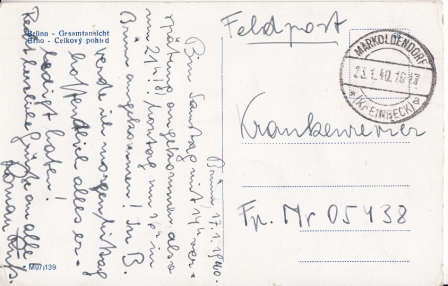 Brünn - Gesamtansicht
Brno - Celkový pohled
Brünn, 17.1.1940.
Bin Samstag mit 14 h Ver-
spätung angekommen also
um 21 h! Montag um 10 in
Brünn angekommen! In B.
werde ich morgen mittag
hoffentlich alles er-
ledigt haben!
Recht herzliche Grüße an alle
Roman
M97/139
Feldpost
MARKOLDENDORF
23.1.40.
(KR EINBECK)
Krankenrevier
Fp. Nr 05438